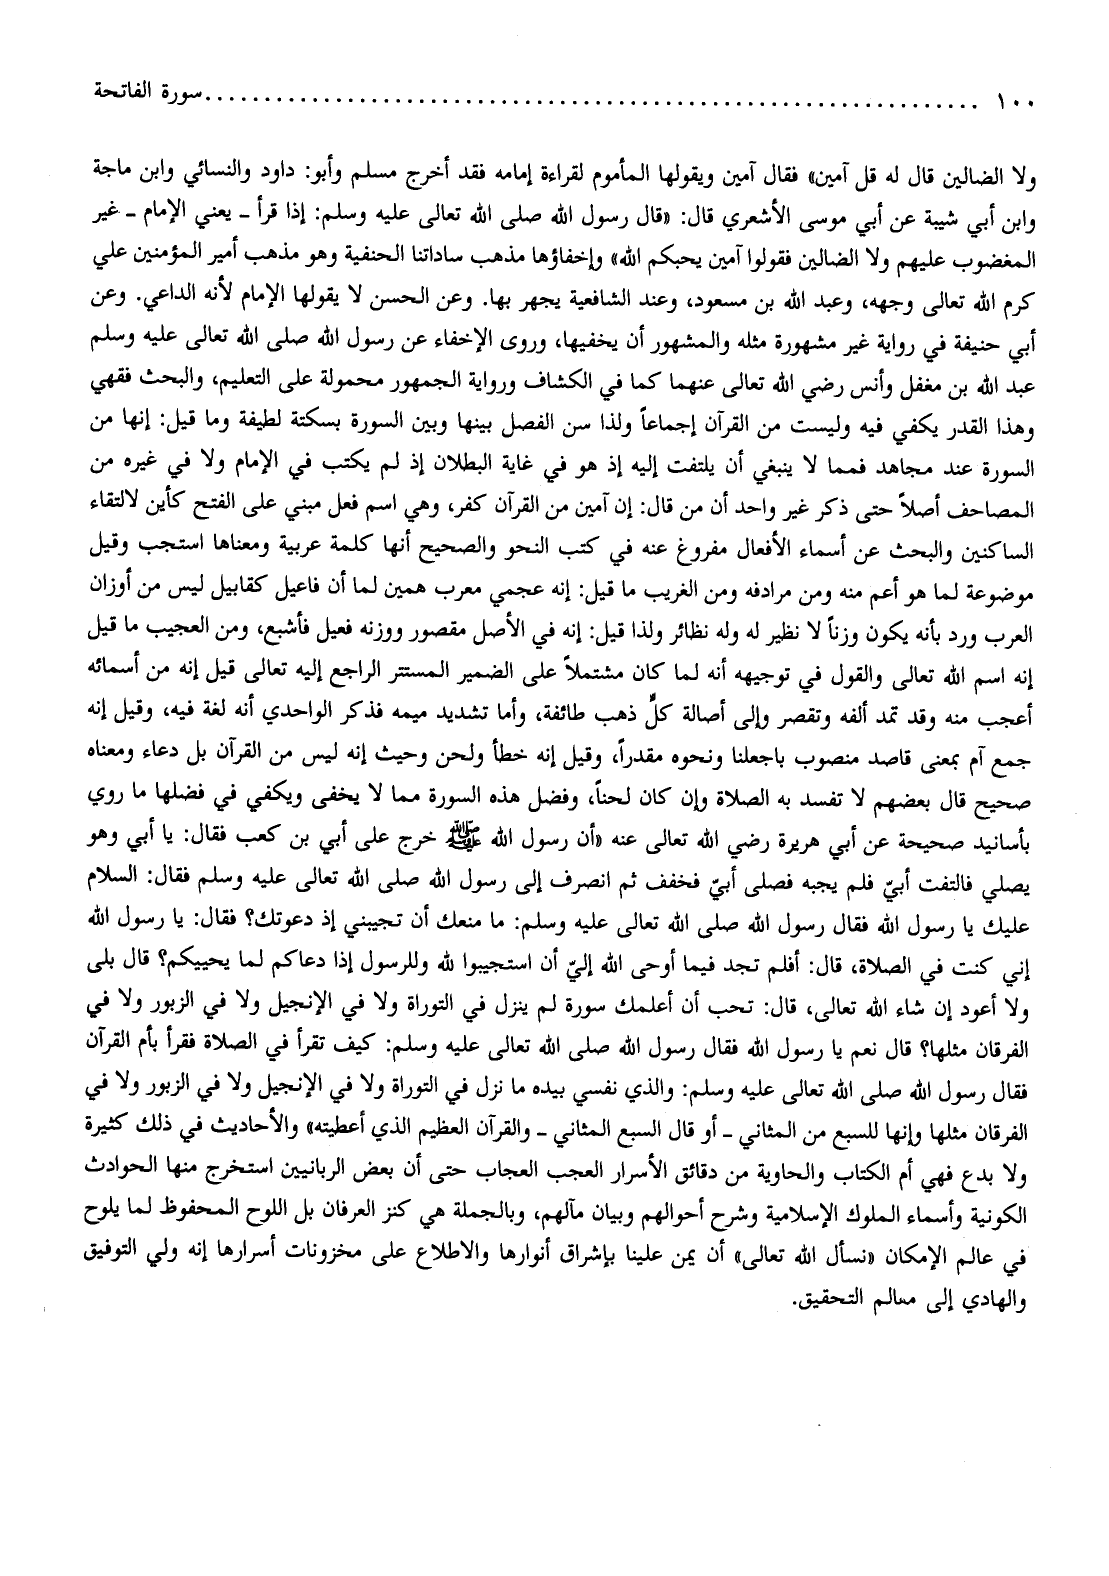 ١٠٠ ..................................................................... سورة الفاتحة
ولا الضالين قال له قل آمين» فقال آمين ويقولها المأموم لقراءة إمامه فقد أخرج مسلم وأبو: داود والنسائي وابن ماجة
وابن أبي شيبة عن أبي موسى الأشعري قال: «قال رسول الله صلى الله تعالى عليه وسلم: إذا قرأ ـ يعني الإمام ـ غير
المغضوب عليهم ولا الضالين فقولوا آمين يحبكم الله» وإخفاؤها مذهب ساداتنا الحنفية وهو مذهب أمير المؤمنين علي
كرم الله تعالى وجهه، وعبد الله بن مسعود، وعند الشافعية يجهر بها. وعن الحسن لا يقولها الإمام لأنه الداعي. وعن
أبي حنيفة في رواية غير مشهورة مثله والمشهور أن يخفيها، وروى الإخفاء عن رسول الله صلى الله تعالى عليه وسلم
عبد الله بن مغفل وأنس رضي الله تعالى عنهما كما في الكشاف ورواية الجمهور محمولة على التعليم، والبحث فقهي
وهذا القدر يكفي فيه وليست من القرآن إجماعاً ولذا سن الفصل بينها وبين السورة بسكتة لطيفة وما قيل: إنها من
السورة عند مجاهد فمما لا ينبغي أن يلتفت إليه إذ هو في غاية البطلان إذ لم يكتب في الإمام ولا في غيره من
المصاحف أصلاً حتى ذكر غير واحد أن من قال: إن آمين من القرآن كفر، وهي اسم فعل مبني على الفتح كأين لالتقاء
الساكنين والبحث عن أسماء الأفعال مفروغ عنه في كتب النحو والصحيح أنها كلمة عربية ومعناها استجب وقيل
موضوعة لما هو أعم منه ومن مرادفه ومن الغريب ما قيل: إنه عجمي معرب همين لما أن فاعيل كقابيل ليس من أوزان
العرب ورد بأنه يكون وزناً لا نظير له وله نظائر ولذا قيل: إنه في الأصل مقصور ووزنه فعيل فأشبع، ومن العجيب ما قيل
إنه اسم الله تعالى والقول في توجيهه أنه لما كان مشتملاً على الضمير المستتر الراجع إليه تعالى قيل إنه من أسمائه
أعجب منه وقد تمد ألفه وتقصر وإلى أصالة كلٍّ ذهب طائفة، وأما تشديد ميمه فذكر الواحدي أنه لغة فيه، وقيل إنه
جمع آم بمعنى قاصد منصوب باجعلنا ونحوه مقدراً، وقيل إنه خطأ ولحن وحيث إنه ليس من القرآن بل دعاء ومعناه
صحيح قال بعضهم لا تفسد به الصلاة وإن كان لحناً، وفضل هذه السورة مما لا يخفى ويكفي في فضلها ما روي
بأسانيد صحيحة عن أبي هريرة رضي الله تعالى عنه «أن رسول الله ﷺ خرج على أبي بن كعب فقال: يا أبي وهو
يصلي فالتفت أبيّ فلم يجبه فصلى أبيّ فخفف ثم انصرف إلى رسول الله صلى الله تعالى عليه وسلم فقال: السلام
عليك يا رسول الله فقال رسول الله صلى الله تعالى عليه وسلم: ما منعك أن تجيبني إذ دعوتك؟ فقال: يا رسول الله
إني كنت في الصلاة، قال: أفلم تجد فيما أوحى الله إليّ أن استجيبوا لله وللرسول إذا دعاكم لما يحييكم؟ قال بلى
ولا أعود إن شاء الله تعالى، قال: تحب أن أعلمك سورة لم ينزل في التوراة ولا في الإنجيل ولا في الزبور ولا في
الفرقان مثلها؟ قال نعم يا رسول الله فقال رسول الله صلى الله تعالى عليه وسلم: كيف تقرأ في الصلاة فقرأ بأم القرآن
فقال رسول الله صلى الله تعالى عليه وسلم: والذي نفسي بيده ما نزل في التوراة ولا في الإنجيل ولا في الزبور ولا في
الفرقان مثلها وإنها للسبع من المثاني ـ أو قال السبع المثاني ـ والقرآن العظيم الذي أعطيته» والأحاديث في ذلك كثيرة
ولا بدع فهي أم الكتاب والحاوية من دقائق الأسرار العجب العجاب حتى أن بعض الربانيين استخرج منها الحوادث
الكونية وأسماء الملوك الإسلامية وشرح أحوالهم وبيان مآلهم، وبالجملة هي كنز العرفان بل اللوح المحفوظ لما يلوح
في عالم الإمكان «نسأل الله تعالى» أن يمن علينا بإشراق أنوارها والاطلاع على مخزونات أسرارها إنه ولي التوفيق
والهادي إلى معالم التحقيق.